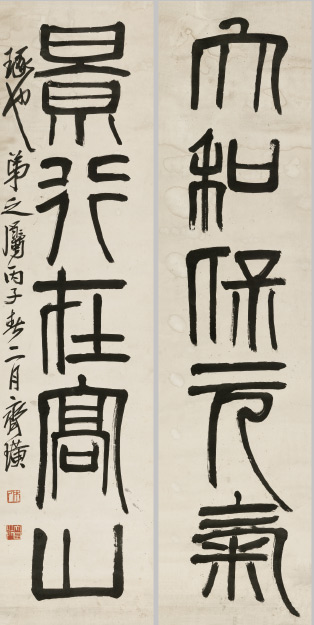 大和保元氣
景行在高山
琢也弟之屬丙子春二月齊璜